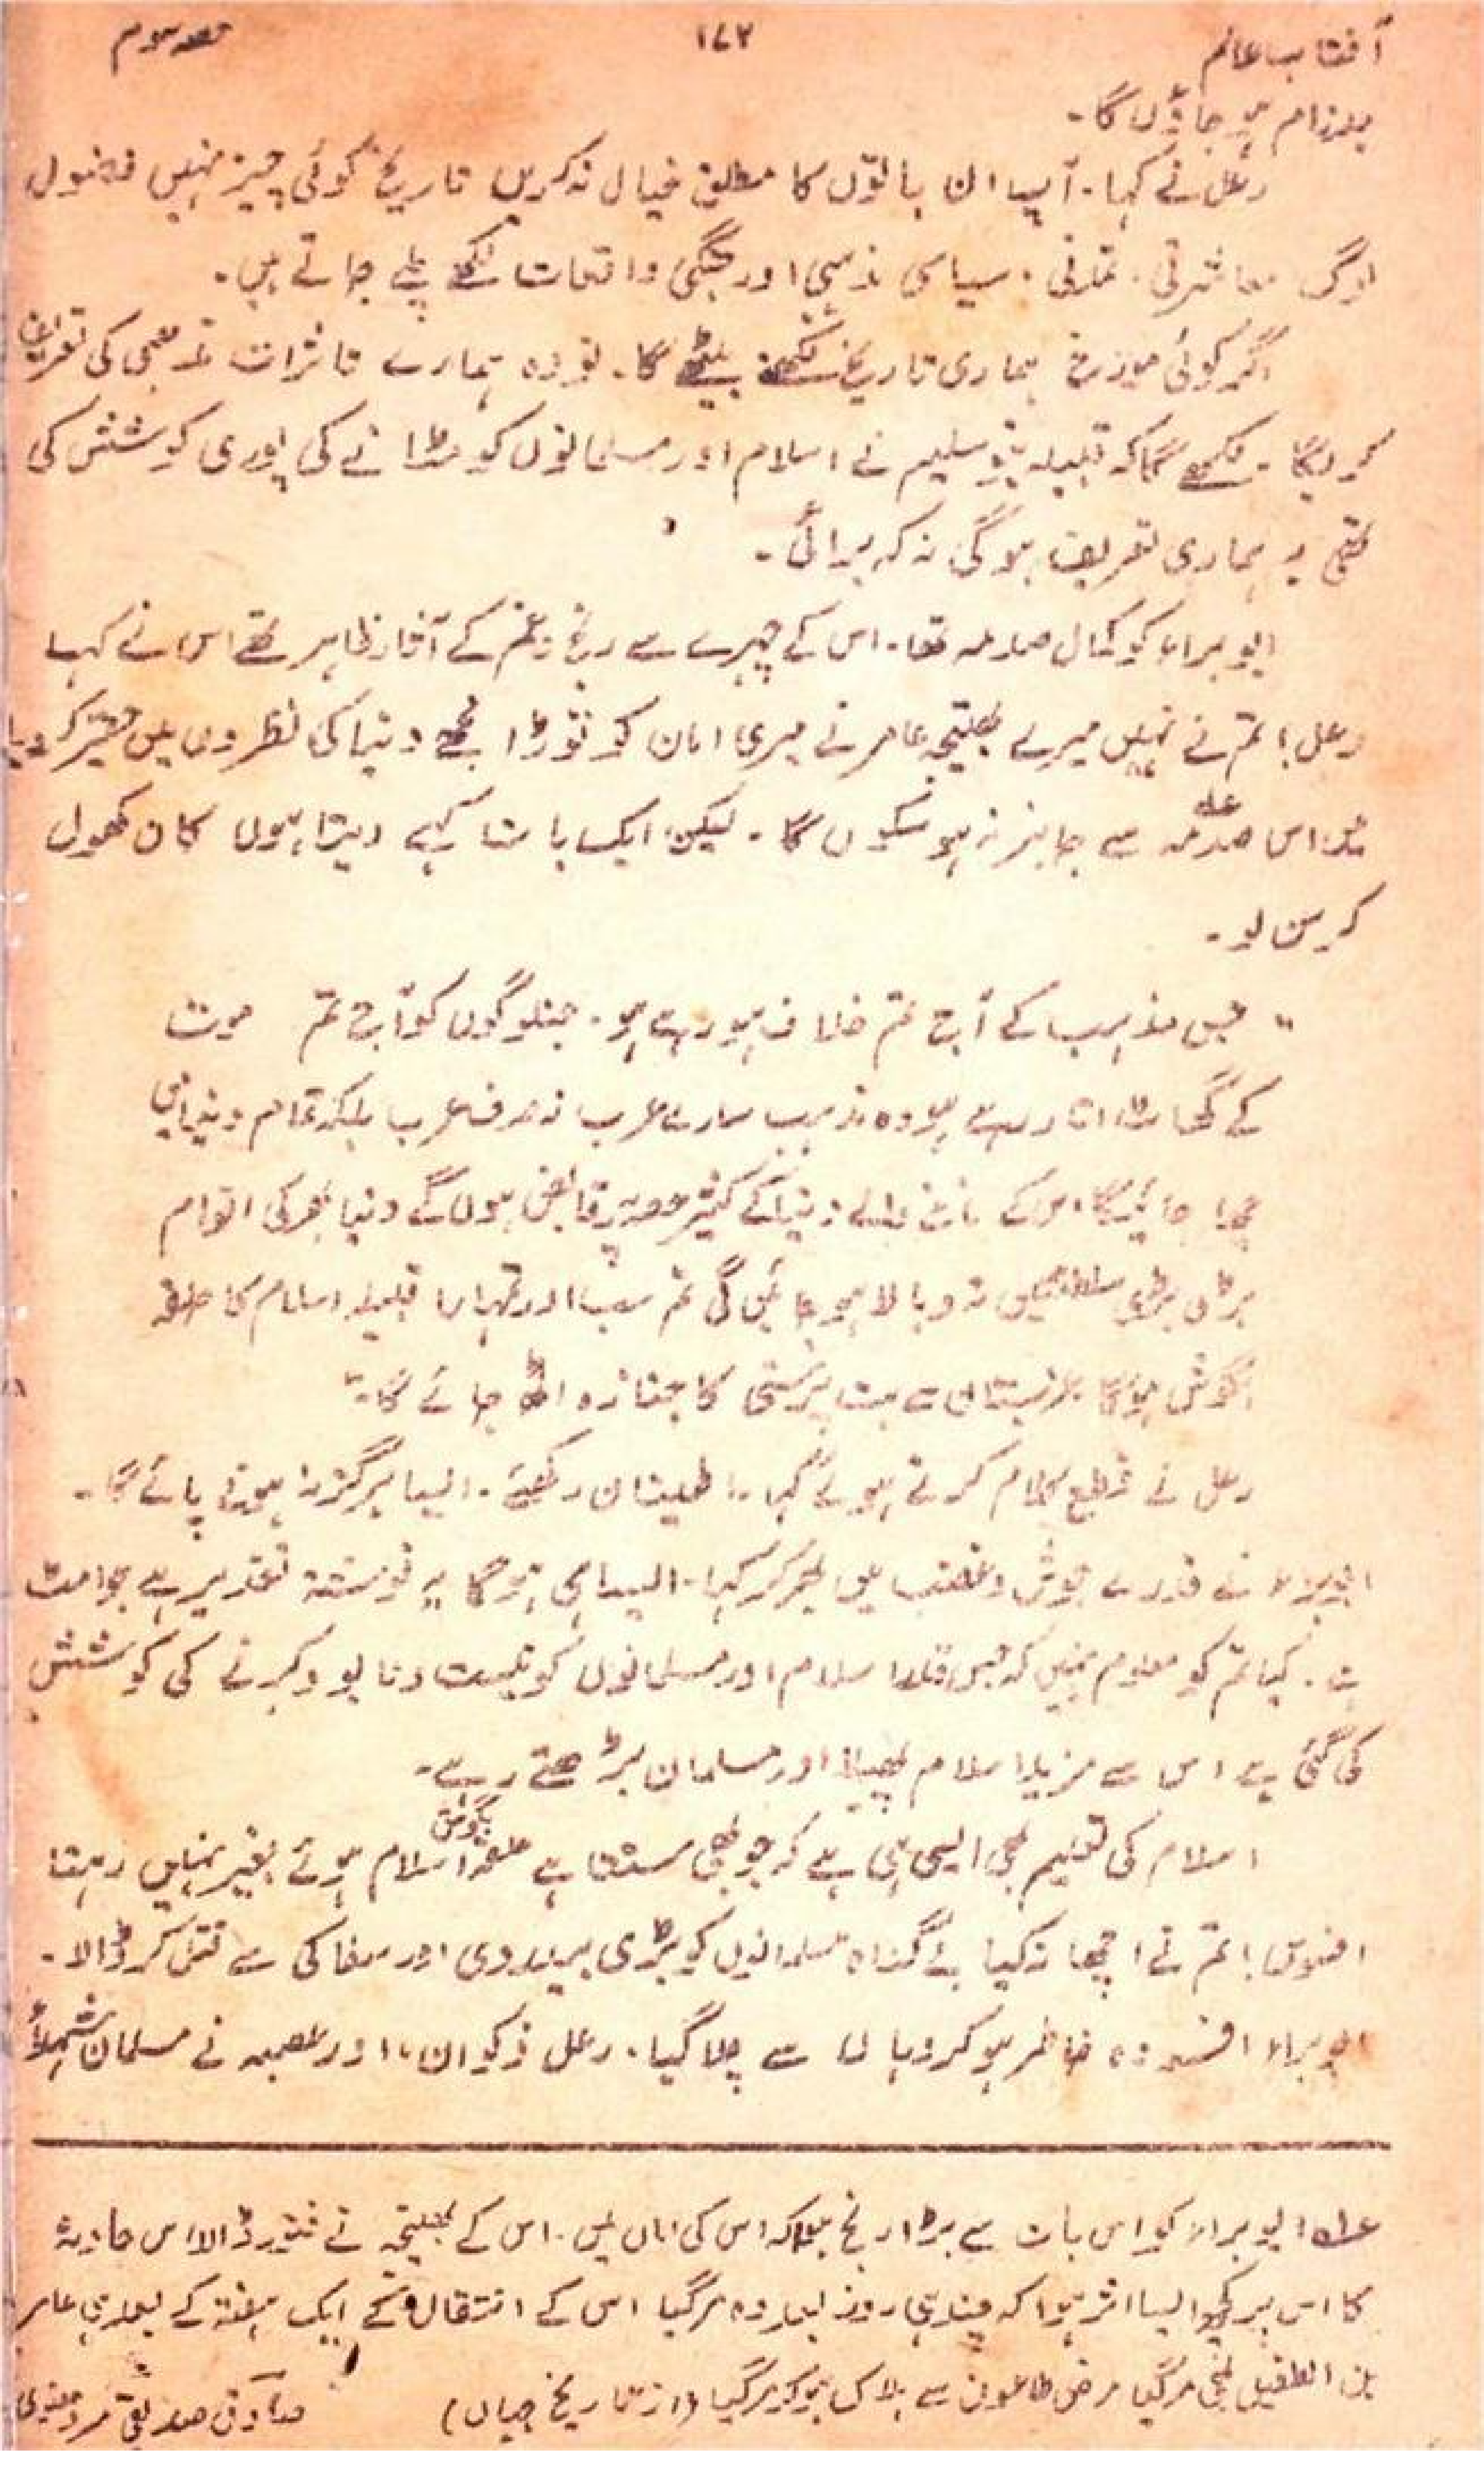 آفتاب عالم ۱۷۲ حصہ سوم
بدنام ہو جاؤں گا۔
رعل نے کہا۔ آپ ان باتوں کا مطلق خیال نہ کریں تاریخ کوئی چیز نہیں فضول
لوگ معاشرتی۔ تمدنی۔ سیاسی مذہبی اور جنگی واقعات لکھے چلے جاتے ہیں۔
اگر کوئی مورخ ہماری تاریخ لکھنے بیٹھے گا۔ تو وہ ہمارے تاثرات مذہبی کی تعریف
کریگا۔ لکھے گا کہ قبیلہ بنو سلیم نے اسلام اور مسلمانوں کو مٹانے کی پوری کوشش کی
یہ ہماری تعریف ہوگی نہ کہ برائی۔
ابو براء کو کمال صدمہ تھا۔ اس کے چہرے سے رنج و غم کے آثار ظاہر تھے اس نے کہا
رعل! تم نے نہیں میرے بھتیجہ عامر نے میری امان کو توڑا مجھے دنیا کی نظروں میں حقیر کر دیا
میں اس صدمہ عله سے جانبر نہ ہو سکوں گا۔ لیکن ایک بات کہے دیتا ہوں کان کھول
کر سن لو۔
"جس مذہب کے آج تم خلاف ہو رہے ہو۔ جن لوگوں کو آج تم موت
کے گھاٹ اتار رہے ہو وہ مذہب سارے عرب نہ صرف عرب بلکہ تمام دنیا میں
چھا جائیگا اس کے ماننے والے دنیا کے کثیر حصہ پر قابض ہوں گے دنیا بھر کی اقوام
بڑی بڑی سلطنتیں تہ و بالا ہو جائیں گی تم سب اور تمہارا قبیلہ اسلام کا حلقہ
بگوش ہوگا عربستان سے بت پرستی کا جنازہ اٹھ جائے گا۔"
رعل نے قطع کلام کرتے ہوئے کہا۔ اطمینان رکھئے۔ ایسا ہرگز نہ ہونے پائے گا۔
ابو براء نے قدرے جوش و غضب میں بھر کر کہا۔ ایسا ہی ہوگا یہ نوشتۂ تقدیر ہے جو امٹ
ہے۔ کیا تم کو معلوم نہیں کہ جس قدر اسلام اور مسلمانوں کو نیست و نابود کرنے کی کوشش
کی گئی ہے اس سے مزید اسلام پھیلا اور مسلمان بڑھتے رہے۔
اسلام کی تعلیم بھی ایسی ہی ہے کہ جو بھی سنتا ہے حلقہ بگوش اسلام ہوئے بغیر نہیں رہتا
افسوس! تم نے اچھا نہ کیا بے گناہ مسلمانوں کو بڑی بیدردی اور سفاکی سے قتل کر ڈالا۔
ابو براء افسردہ خاطر ہو کر وہاں سے چلا گیا۔ رعل ذکوان، اور عصیہ نے مسلمان شہداء
عله ابو براء کو اس بات سے بڑا رنج ہوا کہ اس کی اماں میں۔ اس کے بھتیجہ نے فتور ڈالا اس حادثہ
کا اس پر کچھ ایسا اثر ہوا کہ چند ہی روز بعد وہ مر گیا اس کے انتقال کے ایک ہفتہ کے بعد ہی عامر
بن الطفیل بھی مر گیا مرض طاعون سے ہلاک ہو کر مر گیا (از تاریخ جہاں) صادق صدیقی سردھنوی